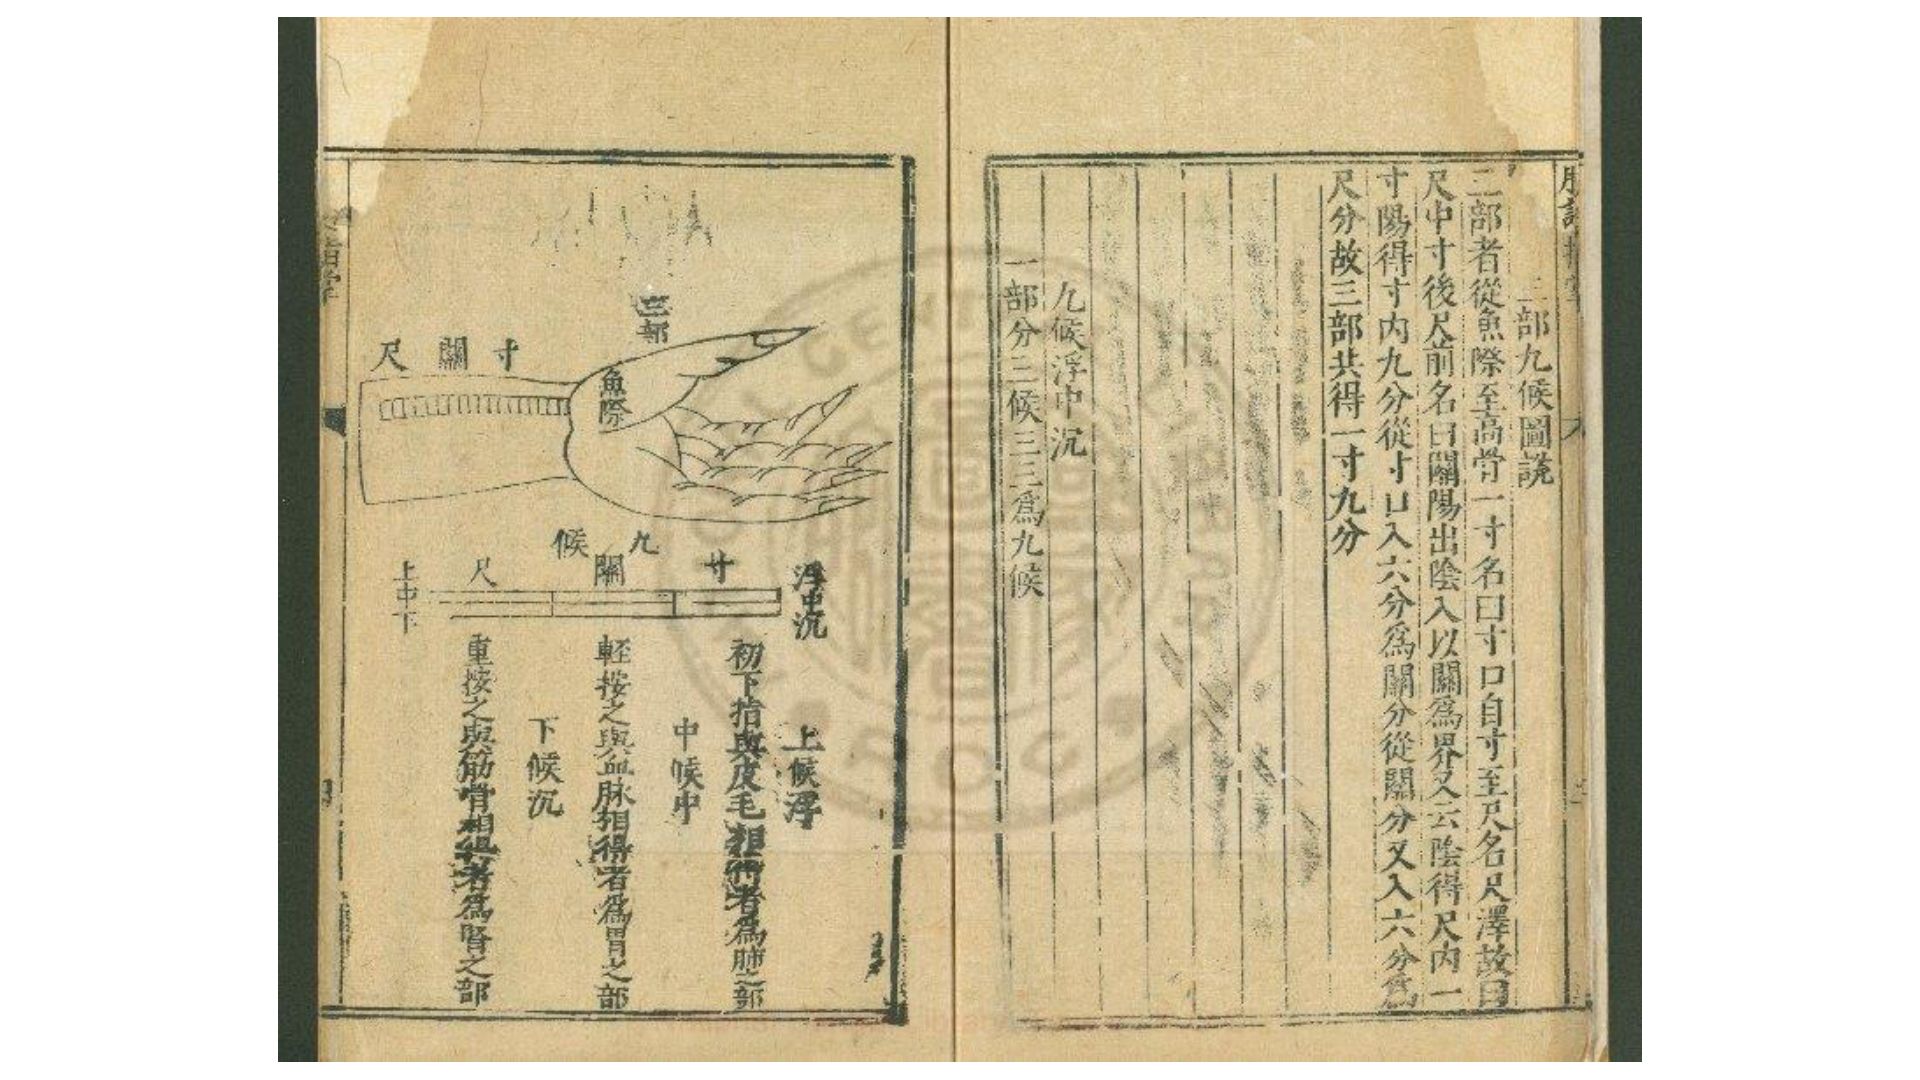 三部九候圖說
三部者從魚際至高骨一寸名曰寸口自寸至尺名尺澤故曰
尺中寸後尺前名曰關陽出陰入以關為界又云陰得尺內一
寸陽得寸內九分從寸口入六分為關分從關分又入六分為
尺分故三部共得一寸九分
九候浮中沉
一部分三候三三為九候
三部
寸 關 尺
魚際
九候
寸 關 尺
浮中沉
上中下
上候浮
初下指與皮毛相得者為肺之部
中候中
輕按之與血脉相得者為胃之部
下候沉
重按之與筋骨相得者為腎之部